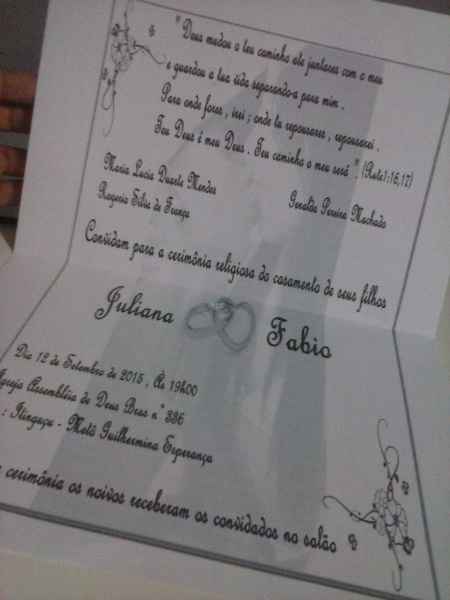 " Deus mudou o teu caminho ate juntares com o meu
e guardou a tua vida separando-a para mim .
Para onde fores , irei ; onde tu repousares , repousarei .
Teu Deus é meu Deus . Teu caminho o meu será ." (Rute1:16,17)
Maria Lucia Duarte Mendes
Geralda Pereira Machado
Rogerio Silva de França
Convidam para a cerimônia religiosa do casamento de seus filhos
Juliana
Fabio
Dia 12 de Setembro de 2015 , Às 19h00
Igreja Assembléia de Deus Bras n° 336
: Itinguçu - Metô Guilhermina Esperança
cerimônia os noivos receberam os convidados no salão